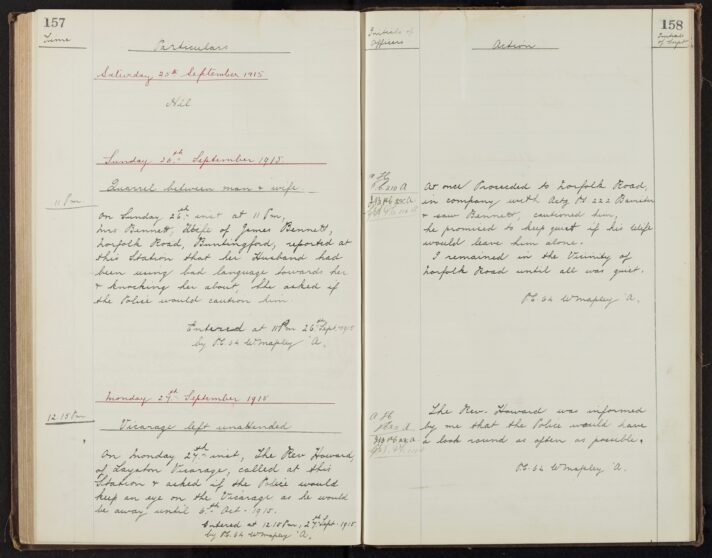 157
Time
Particulars
Saturday 25th September 1915
Nil
Sunday 26th September 1915.
Quarrel between man & wife
11 Pm
On Sunday 26th inst at 11 Pm,
Mrs Bennett, Wife of James Bennett,
Norfolk Road, Buntingford, reported at
this Station that her Husband had
been using bad language towards her
& knocking her about, She asked if
the Police would caution him.
Entered at 11 Pm 26th Sept. 1915
by P.C. 64 W Mapley 'A'.
Monday 27th September 1915
12.15 Pm
Vicarage left unattended
On Monday 27th inst, The Rev Howard,
of Layston Vicarage, called at this
Station & asked if the Police would
keep an eye on the Vicarage as he would
be away until 6th Oct. 1915.
Entered at 12.15 Pm, 27th Sept. 1915
by P.C. 64 W Mapley 'A'.
158
Initials of
Officers
Action
Initials
of Supt
At once Proceeded to Norfolk Road,
in company with Actg PS 222 Banister
& saw Bennett, cautioned him,
he promised to keep quiet if his Wife
would leave him alone.
I remained in the Vicinity of
Norfolk Road until all was quiet.
P.C. 64 W Mapley 'A'.
The Rev. Howard was informed
by me that the Police would have
a look round as often as possible.
P.C. 64 W Mapley 'A'.